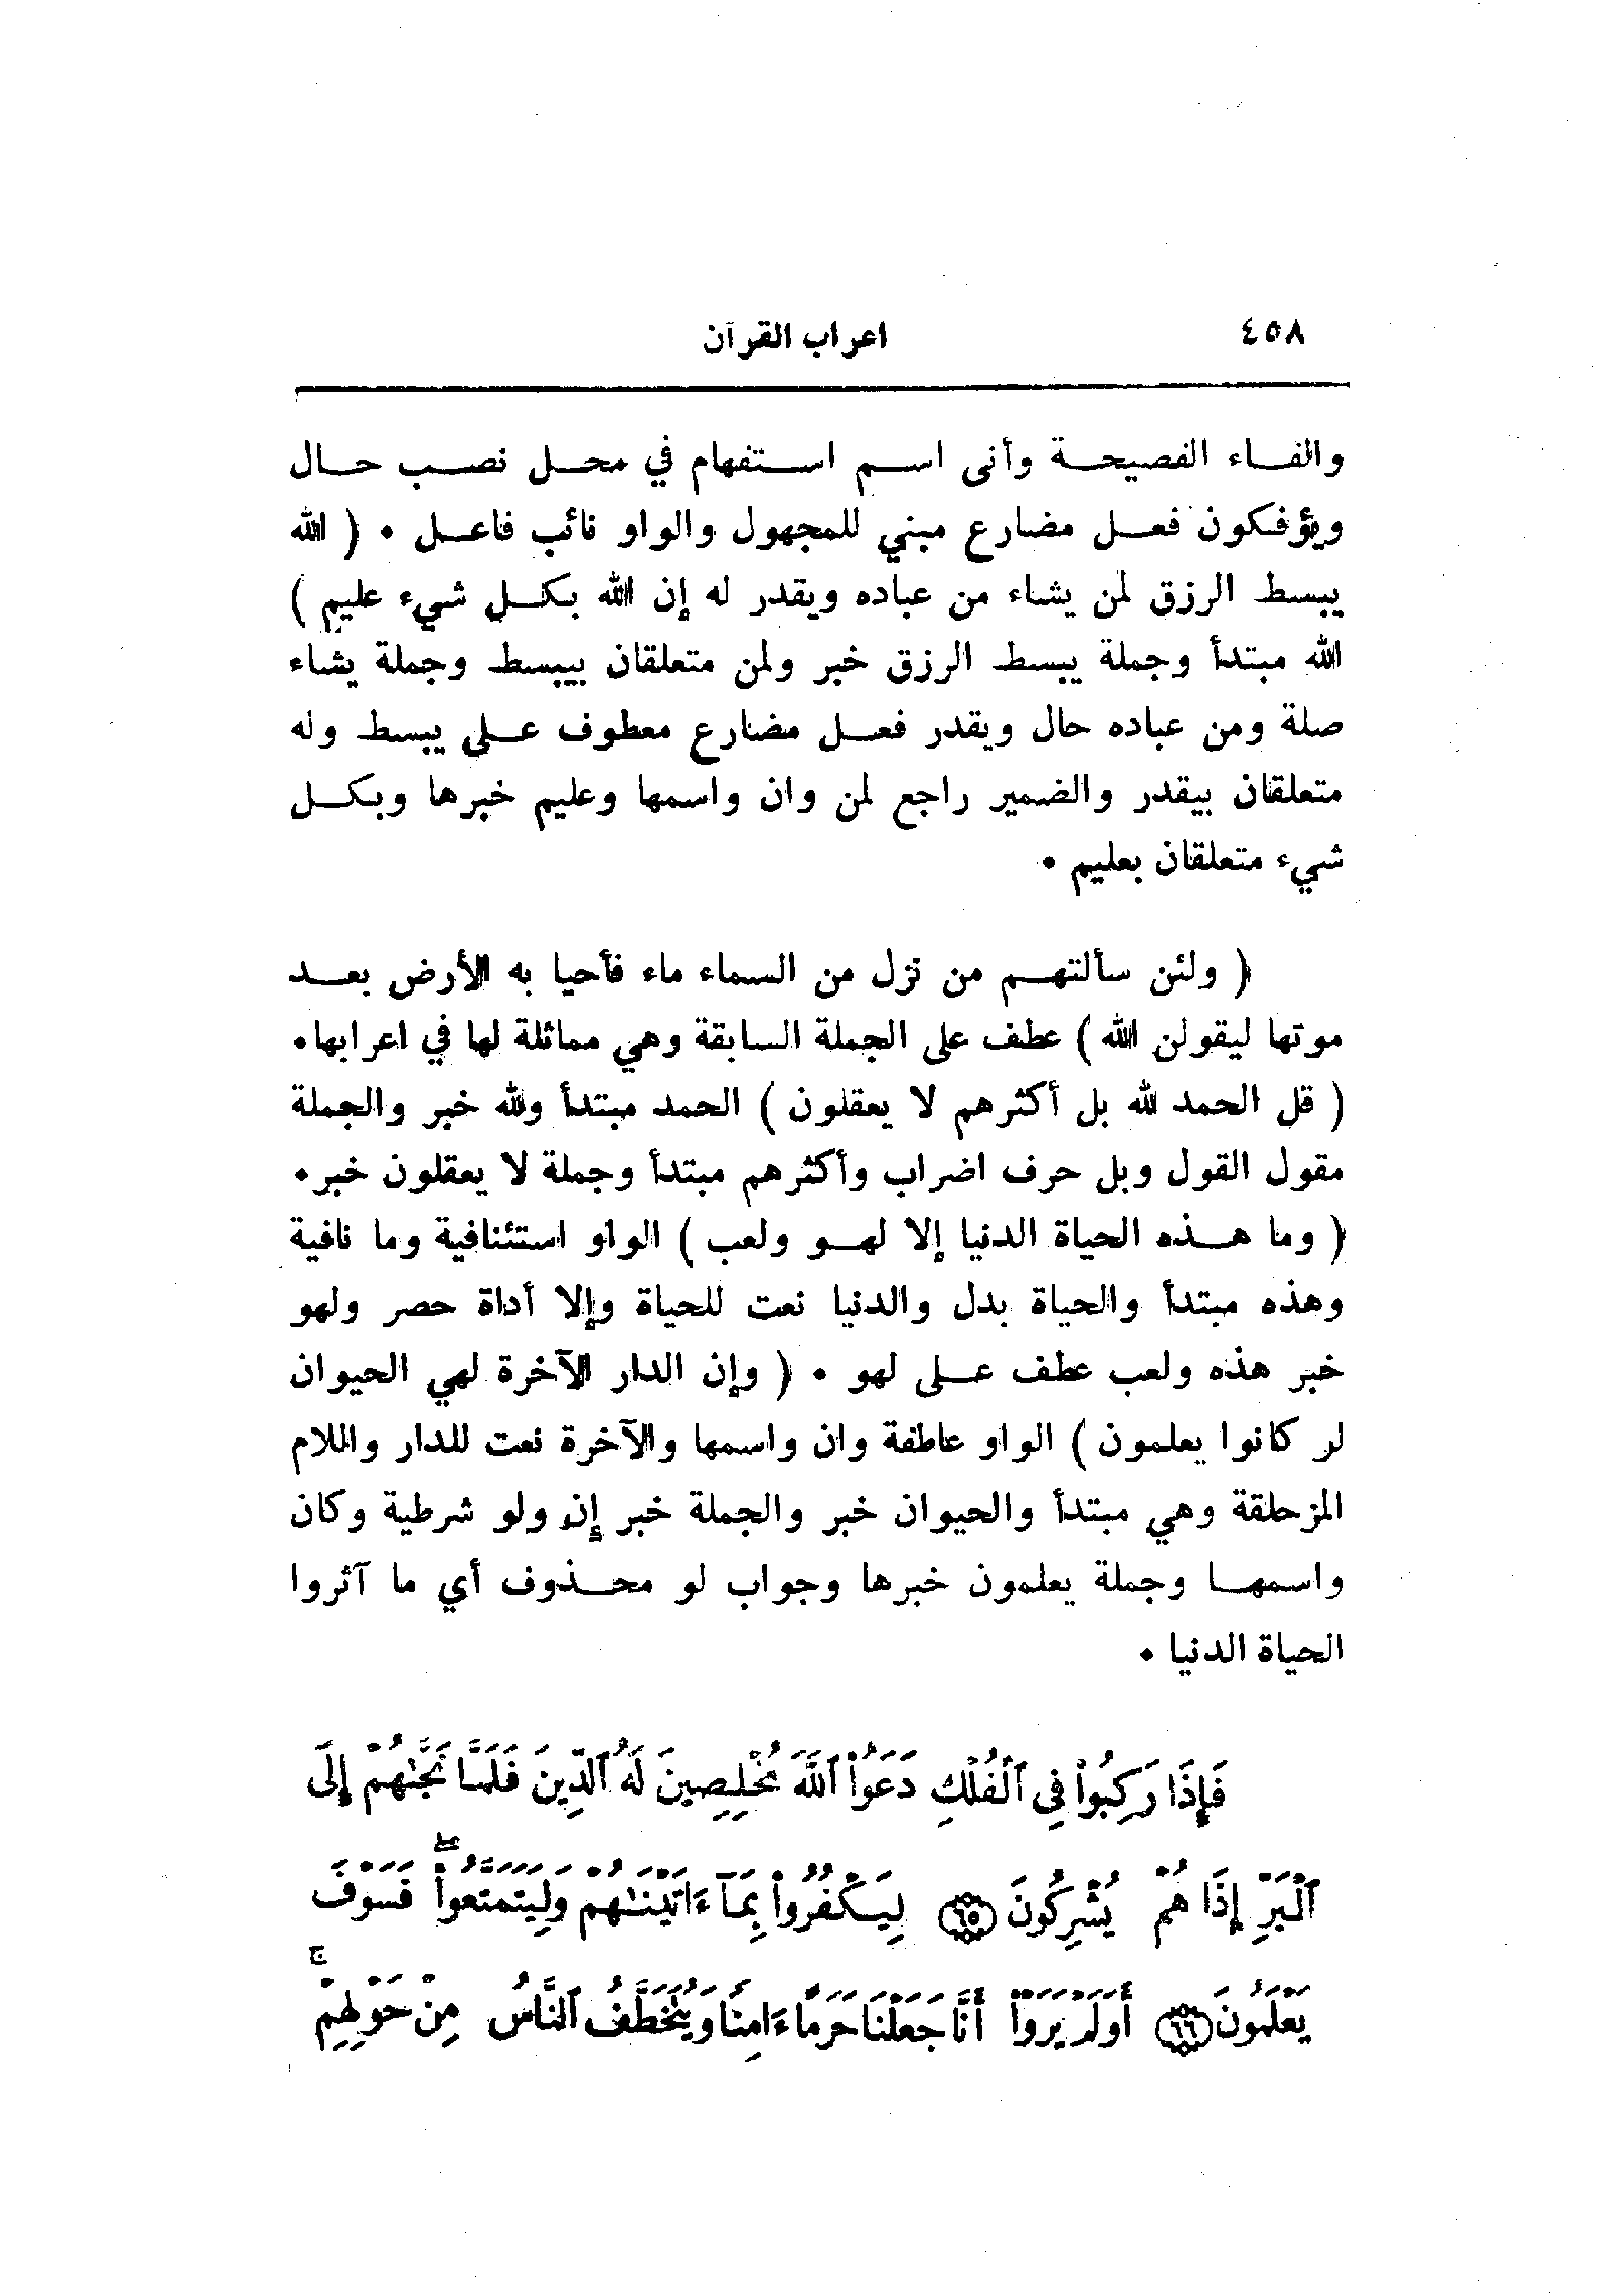 ٤٥٨ اعراب القرآن
والفاء الفصيحة وأنى اسم استفهام في محل نصب حال
ويؤفكون فعل مضارع مبني للمجهول والواو نائب فاعل . ( الله
يبسط الرزق لمن يشاء من عباده ويقدر له إن الله بكل شيء عليم )
الله مبتدأ وجملة يبسط الرزق خبر ولمن متعلقان بيبسط وجملة يشاء
صلة ومن عباده حال ويقدر فعل مضارع معطوف على يبسط وله
متعلقان بيقدر والضمير راجع لمن وان واسمها وعليم خبرها وبكل
شيء متعلقان بعليم .
( ولئن سألتهم من نزل من السماء ماء فأحيا به الأرض بعد
موتها ليقولن الله ) عطف على الجملة السابقة وهي مماثلة لها في اعرابها.
( قل الحمد لله بل أكثرهم لا يعقلون ) الحمد مبتدأ ولله خبر والجملة
مقول القول وبل حرف اضراب وأكثرهم مبتدأ وجملة لا يعقلون خبر.
( وما هذه الحياة الدنيا إلا لهو ولعب ) الواو استئنافية وما نافية
وهذه مبتدأ والحياة بدل والدنيا نعت للحياة وإلا أداة حصر ولهو
خبر هذه ولعب عطف على لهو . ( وإن الدار الآخرة لهي الحيوان
لو كانوا يعلمون ) الواو عاطفة وان واسمها والآخرة نعت للدار واللام
المزحلقة وهي مبتدأ والحيوان خبر والجملة خبر إن ولو شرطية وكان
واسمها وجملة يعلمون خبرها وجواب لو محذوف أي ما آثروا
الحياة الدنيا .
فَإِذَا رَكِبُواْ فِي ٱلْفُلْكِ دَعَوُاْ ٱللَّهَ مُخْلِصِينَ لَهُ ٱلدِّينَ فَلَمَّا نَجَّىٰهُمْ إِلَى
ٱلْبَرِّ إِذَا هُمْ يُشْرِكُونَ ﴿٦٥﴾ لِيَكْفُرُواْ بِمَآ ءَاتَيْنَـٰهُمْ وَلِيَتَمَتَّعُواْ ۖ فَسَوْفَ
يَعْلَمُونَ ﴿٦٦﴾ أَوَلَمْ يَرَوْاْ أَنَّا جَعَلْنَا حَرَمًا ءَامِنًا وَيُتَخَطَّفُ ٱلنَّاسُ مِنْ حَوْلِهِمْ ۚ